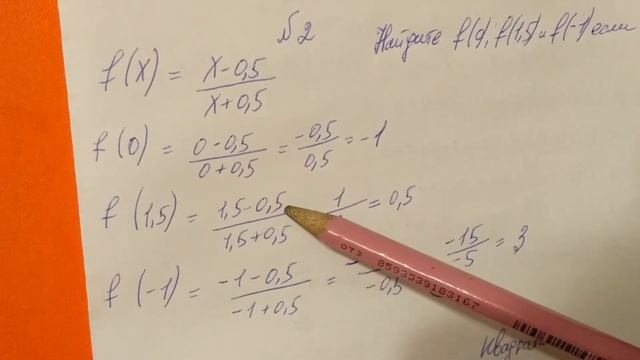 №2
Найдите f(0); f(1,5) и f(-1) если
f(x) = x-0,5 / x+0,5
f(0) = 0-0,5 / 0+0,5 = -0,5 / 0,5 = -1
f(1,5) = 1,5-0,5 / 1,5+0,5 1 = 0,5
f(-1) = -1-0,5 / -1+0,5 = -0,5 -15 / -5 = 3
отэ 8593539183167